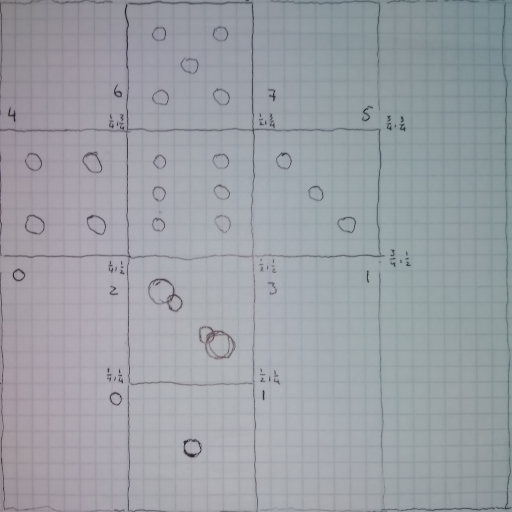 6 7
4 5
1/4, 3/4 1/2, 3/4 3/4, 3/4
1/4, 1/2 1/2, 1/2 3/4, 1/2
0 2 3 1
1/4, 1/4 1/2, 1/4
0 1